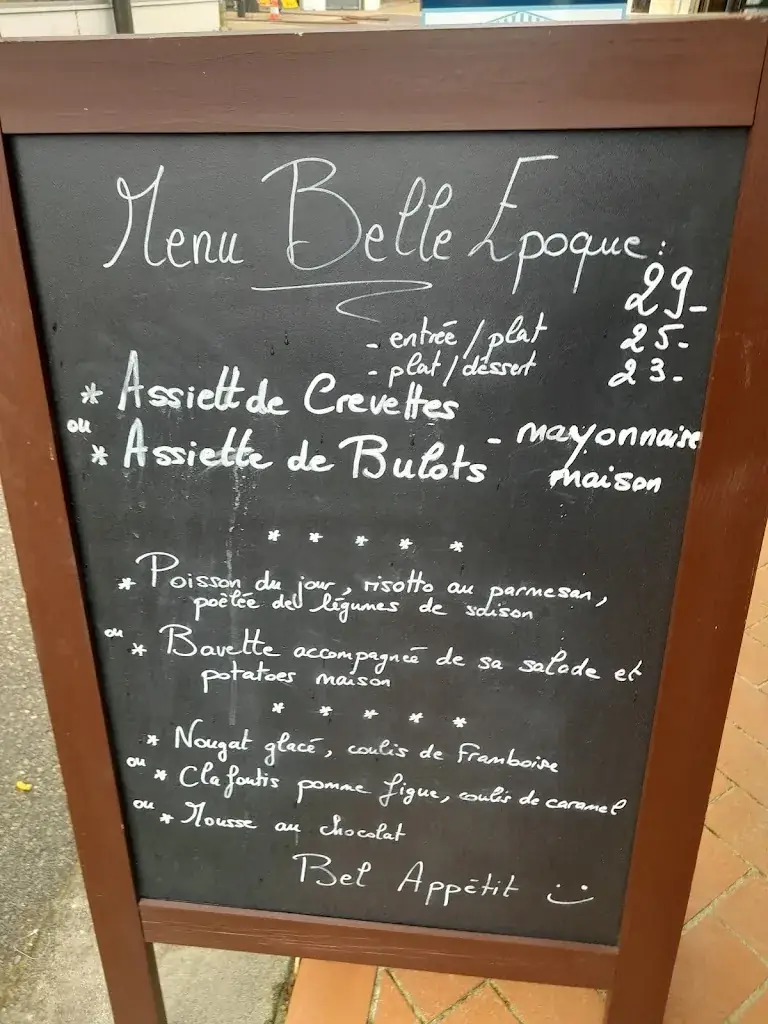 Menu Belle Epoque :
29-
- entrée / plat 25-
- plat / déssert 23-
* Assiett de Crevettes
ou
* Assiette de Bulots - mayonnaise
maison
* * * * *
* Poisson du jour, risotto au parmesan,
poêlée de légumes de saison
ou
* Bavette accompagnée de sa salade et
potatoes maison
* * * * *
* Nougat glacé, coulis de Framboise
ou
* Clafoutis pomme figue, coulis de caramel
ou
* Mousse au chocolat
Bel Appétit :-)